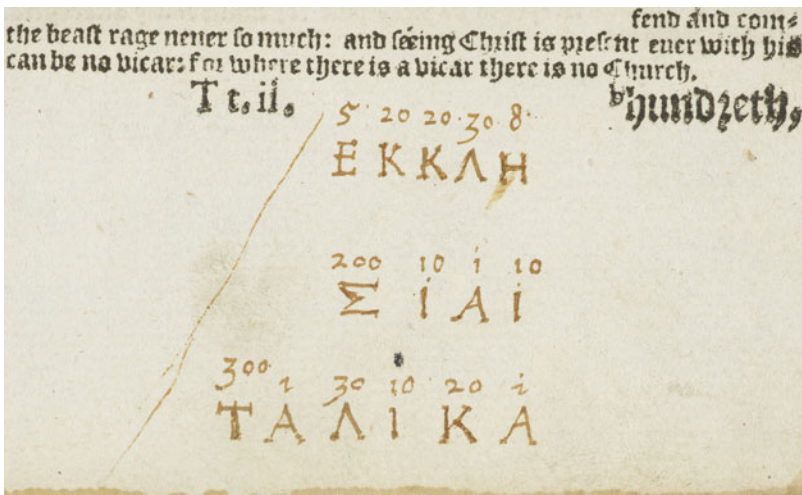 fend and com=
the beaſt rage neuer ſo much: and ſéing Chriſt is preſent euer with his
can be no vicar: for where there is a vicar there is no Church.
Tt.ii. hundreth,
5 20 20 30 8
Ε Κ Κ Λ Η
200 10 i 10
Σ Ι Α Ι
300 1 30 10 20 i
Τ Α Λ Ι Κ Α